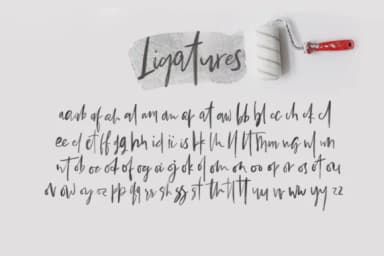 Ligatures
aa ab af ah al am an ap at aw bb bl cc ch ck cl
ee el et ff gg hh id ii is kk lk ll lt mm ng nl nn
nt ob oc od of og oi oj ok ol om on oo op or os ot ou
ov ow oy oz pp qq rr sh ss st th tl tt uu vv ww yy zz